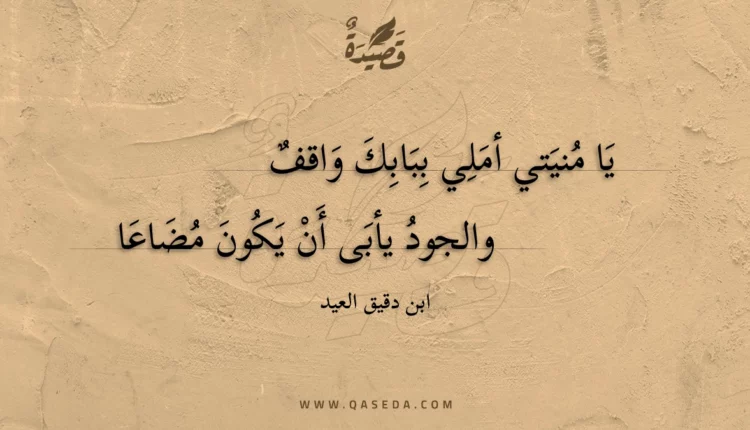 قَصِيدَةٌ
يَا مُنيَتي أمَلِي بِبَابِكَ وَاقفٌ
والجودُ يأبَى أَنْ يَكُونَ مُضَاعَا
ابن دقيق العيد
WWW.QASEDA.COM